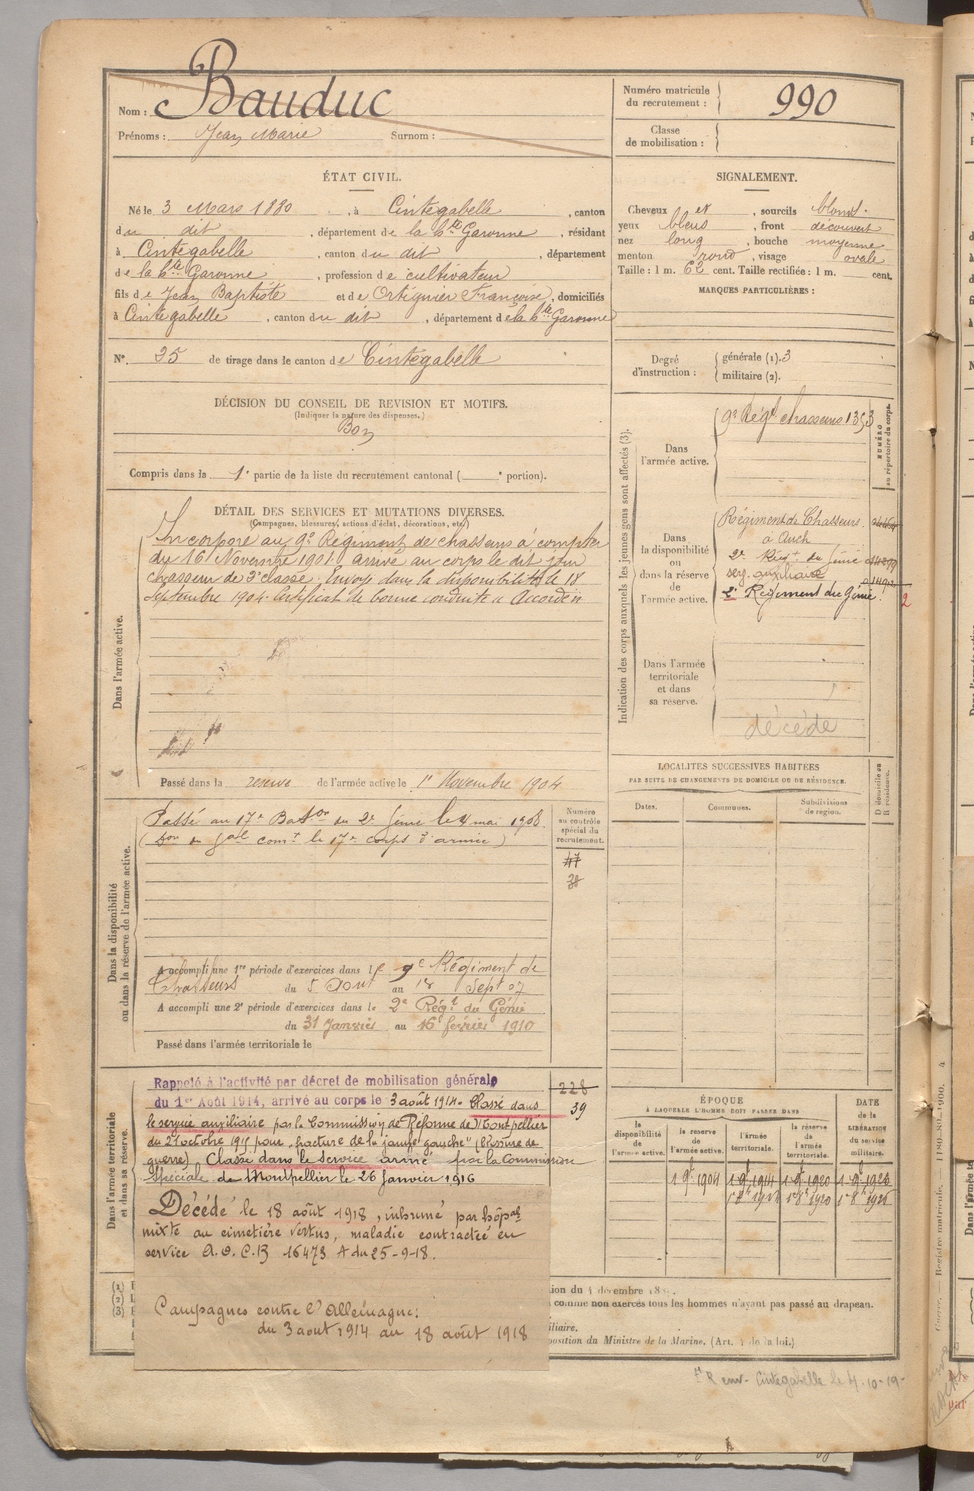 Nom : Bauduc
Prénoms : Jean Marie Surnom :
Numéro matricule du recrutement : 990
Classe de mobilisation :
ÉTAT CIVIL.
Né le 3 Mars 1880, à Cintegabelle, canton
du dit, département de la Hte Garonne, résidant
à Cintegabelle, canton du dit, département
de la Hte Garonne, profession de cultivateur
fils de Jean Baptiste et de Ortignier Françoise, domiciliés
à Cintegabelle, canton du dit, département de la Hte Garonne
N° 35 de tirage dans le canton de Cintegabelle
SIGNALEMENT.
Cheveux et, sourcils blonds
yeux bleus, front découvert
nez long, bouche moyenne
menton rond, visage ovale
Taille : 1 m. 62 cent. Taille rectifiée : 1 m. cent.
MARQUES PARTICULIÈRES :
Degré d'instruction : générale (1). 3
militaire (2).
DÉCISION DU CONSEIL DE REVISION ET MOTIFS.
(Indiquer la nature des dispenses.)
Bon
Compris dans la 1e partie de la liste du recrutement cantonal ( e portion).
DÉTAIL DES SERVICES ET MUTATIONS DIVERSES.
(Campagnes, blessures, actions d'éclat, décorations, etc.)
Dans l'armée active.
Incorporé au 9e Régiment de chasseurs à compter
du 16 Novembre 1901 arrivé au corps le dit jour
chasseur de 2e classe. Envoyé dans la disponibilité le 18
Septembre 1904. Certificat de bonne conduite « Accordé »
Passé dans la réserve de l'armée active le 1er Novembre 1904
Indication des corps auxquels les jeunes gens sont affectés (3).
NUMÉRO au répertoire du corps.
Dans l'armée active.
9e Régt chasseurs 1353
Dans la disponibilité ou dans la réserve de l'armée active.
Régiment de Chasseurs
à Auch
2e Régt du Génie
serv. auxiliaire
2e Régiment du Génie.
2
Dans l'armée territoriale et dans sa reserve.
décédé
LOCALITES SUCCESSIVES HABITEES
PAR SUITE DE CHANGEMENTS DE DOMICILE OU DE RÉSIDENCE.
Dates.
Communes.
Subdivisions de region.
D domicile ou R résidence.
Dans la disponibilité ou dans la réserve de l'armée active.
Passé au 17e Baton du 2e Génie le 4 mai 1908.
(Don du Gal comt le 17e corps d'armée)
Numéro au contrôle spécial du recrutement.
47
38
A accompli une 1re période d'exercices dans le 9e Régiment de
Chasseurs du 5 Aout au 1er Sept 07
A accompli une 2e période d'exercices dans le 2e Régt du Génie
du 31 Janvier au 16 février 1910
Passé dans l'armée territoriale le
Dans l'armée territoriale et dans sa réserve.
Rappelé à l'activité par décret de mobilisation générale
du 1er Août 1914, arrivé au corps le 3 août 1914. Classé dans
le service auxiliaire par la Commission de Réforme de Montpellier
du 21 octobre 1915 pour "fracture de la jambe gauche" (Blessure de
guerre) Classé dans le service armé par la Commission
Spéciale de Montpellier le 26 janvier 1916
228
39
Décédé le 18 août 1918, inhumé par hôpal
mixte au cimetière vertus, maladie contractée en
service A.O.C.B 16473 A du 25-9-18.
Campagnes contre l'Allemagne:
du 3 aout 1914 au 18 août 1918
ÉPOQUE
À LAQUELLE L'HOMME DOIT PASSER DANS
DATE de la LIBÉRATION du service militaire.
la disponibilité de l'armée active.
la réserve de l'armée active.
l'armée territoriale.
la réserve de l'armée territoriale.
1 9e 1904 1 9e 1914 1 9e 1920
(1)
(2)
(3)
comme non exercés tous les hommes n'ayant pas passé au drapeau.
position du Ministre de la Marine. (Art. de la loi.)
env. Cintegabelle le 4-10-19